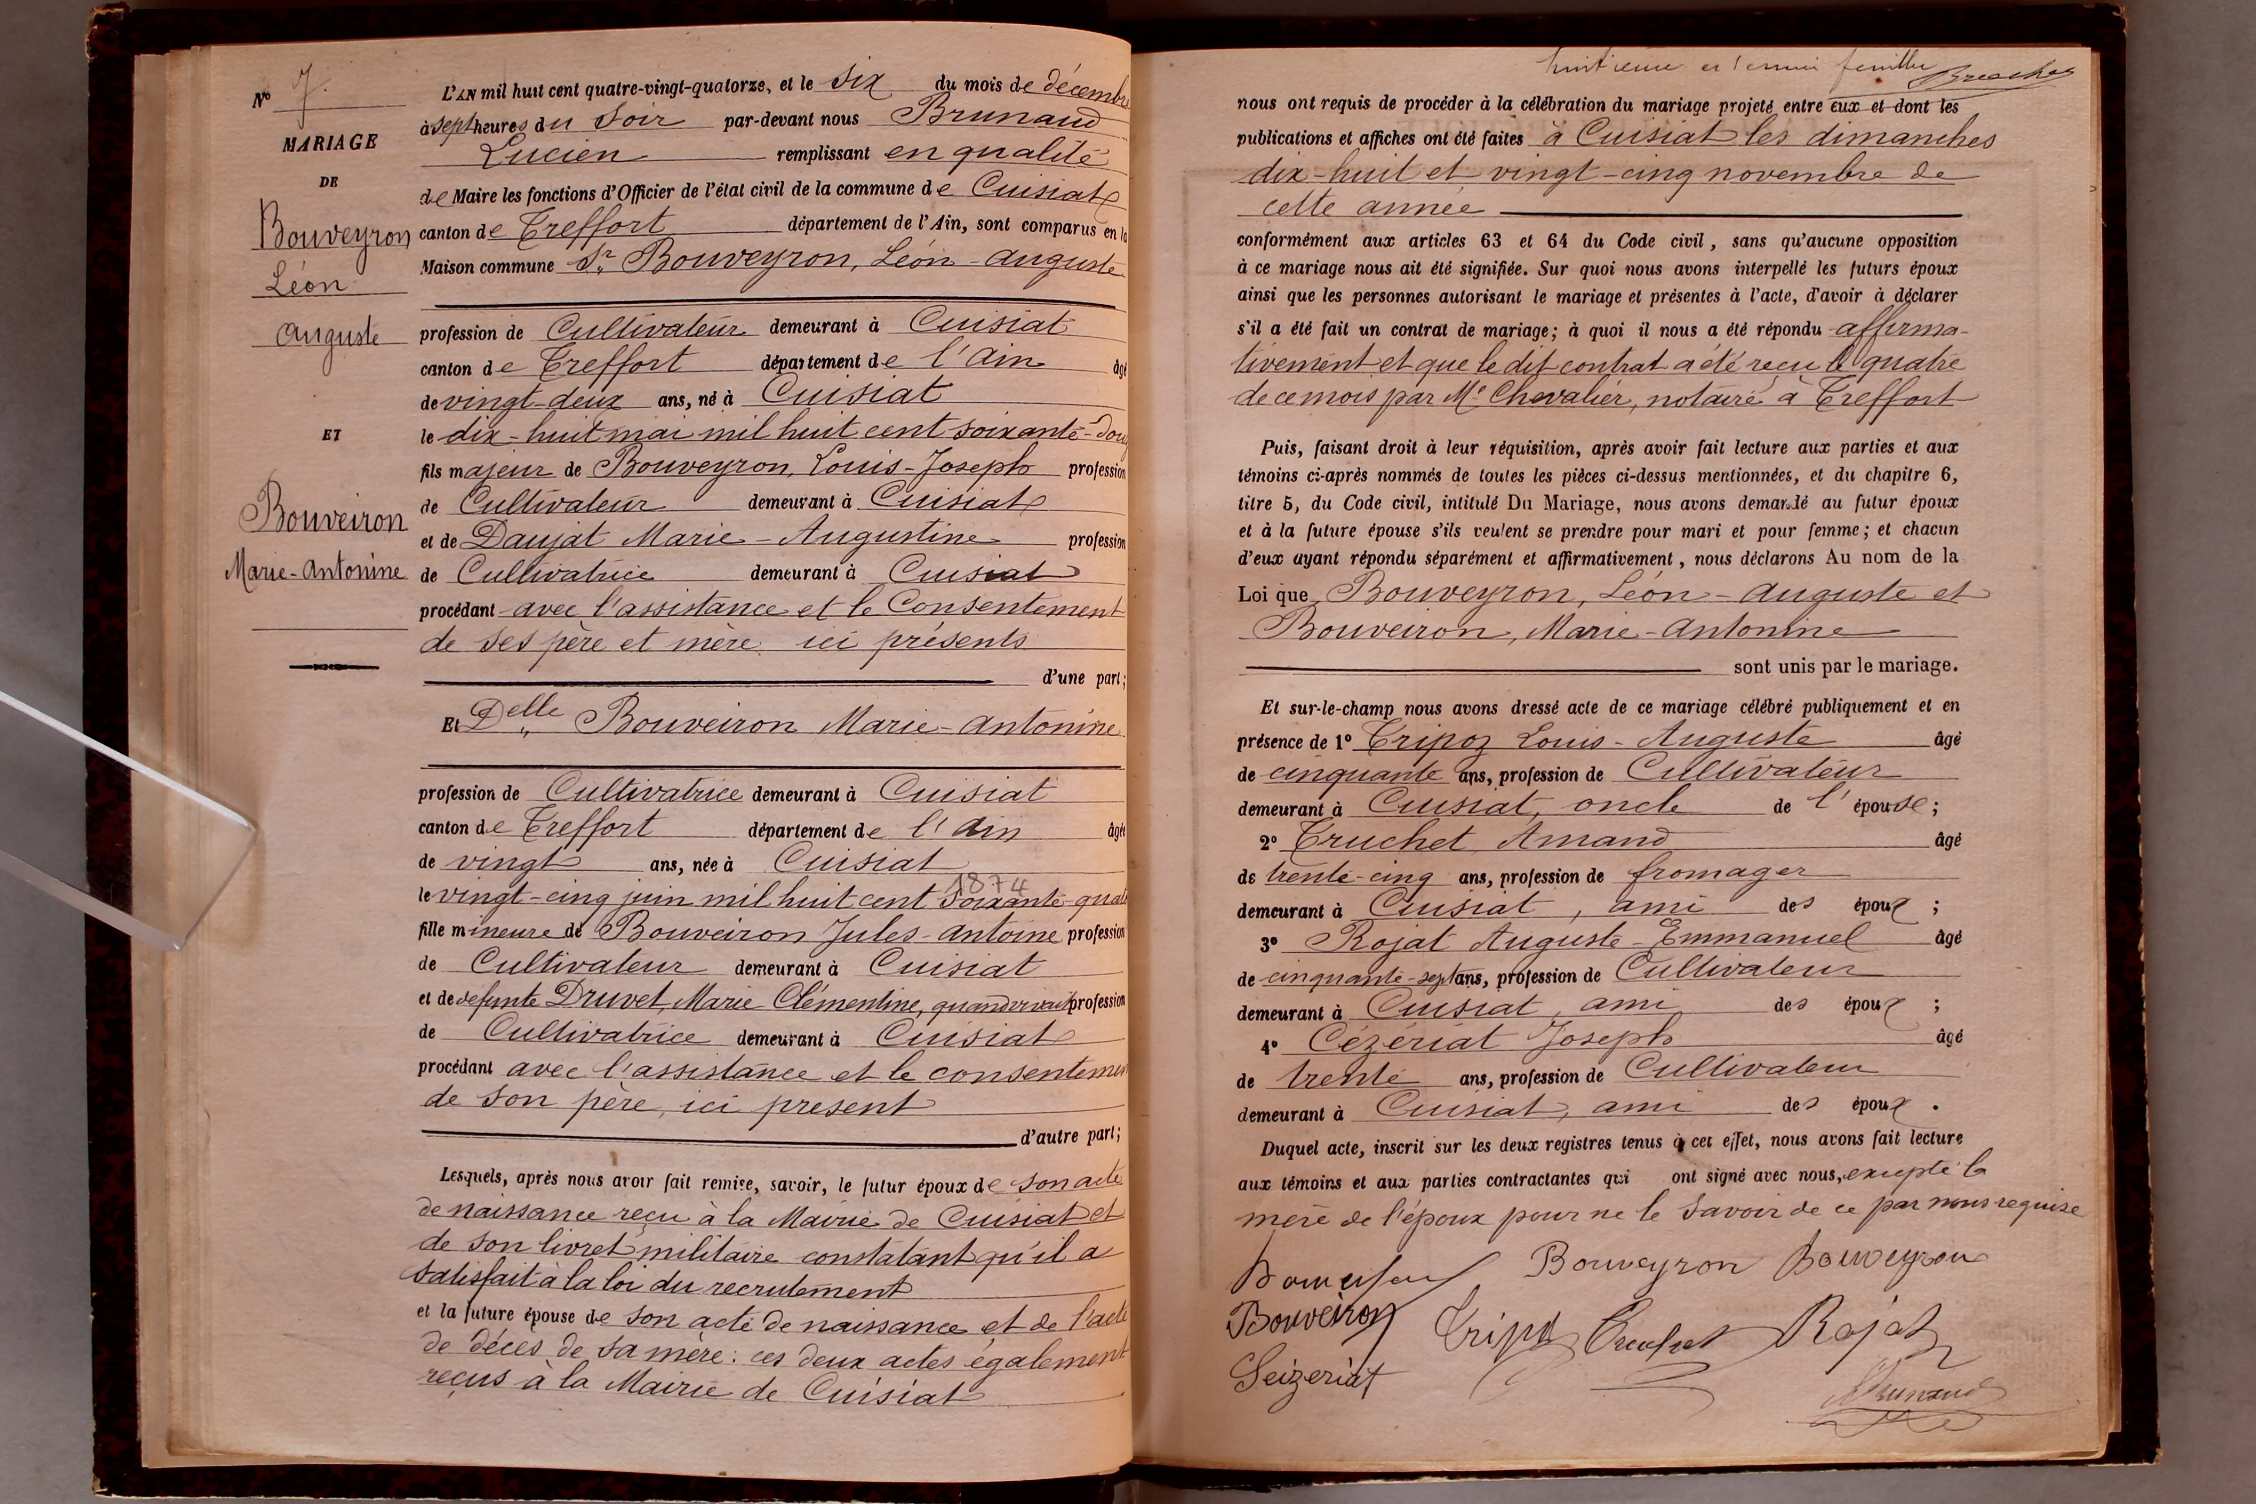 N° 7
MARIAGE
DE
Bouveyron
Léon
Auguste
ET
Bouveiron
Marie-Antonine
L'AN mil huit cent quatre-vingt-quatorze, et le six du mois de décembre
à sept heures du Soir par-devant nous Brunaud
Lucien remplissant en qualité
de Maire les fonctions d'Officier de l'état civil de la commune de Cuisiat
canton de Treffort département de l'Ain, sont comparus en la
Maison commune Sr Bouveyron, Léon-Auguste
profession de Cultivateur demeurant à Cuisiat
canton de Treffort département de l'Ain âgé
de vingt-deux ans, né à Cuisiat
le dix-huit mai mil huit cent soixante-douz
fils majeur de Bouveyron, Louis-Joseph profession
de Cultivateur demeurant à Cuisiat
et de Daujat Marie-Augustine profession
de Cultivatrice demeurant à Cuisiat
procédant avec l'assistance et le Consentement
de ses père et mère ici présents
d'une part;
Et Delle Bouveiron Marie-Antonine
profession de Cultivatrice demeurant à Cuisiat
canton de Treffort département de l'Ain âgée
de vingt ans, née à Cuisiat
1874
le vingt-cinq juin mil huit cent soixante-quat
fille mineure de Bouveiron Jules-Antoine profession
de Cultivateur demeurant à Cuisiat
et de défunte Druvet, Marie Clémentine, quand vivait profession
de Cultivatrice demeurant à Cuisiat
procédant avec l'assistance et le consentemen
de son père, ici présent
d'autre part;
Lesquels, après nous avoir fait remise, savoir, le futur époux de son acte
de naissance reçu à la Mairie de Cuisiat et
de son livret militaire constatant qu'il a
satisfait à la loi du recrutement
et la future épouse de son acte de naissance et de l'acte
de décès de sa mère: ces deux actes également
reçus à la Mairie de Cuisiat
huitième et feuillet
nous ont requis de procéder à la célébration du mariage projeté entre eux et dont les
publications et affiches ont été faites à Cuisiat les dimanches
dix-huit et vingt-cinq novembre de
cette année
conformément aux articles 63 et 64 du Code civil, sans qu'aucune opposition
à ce mariage nous ait été signifiée. Sur quoi nous avons interpellé les futurs époux
ainsi que les personnes autorisant le mariage et présentes à l'acte, d'avoir à déclarer
s'il a été fait un contrat de mariage; à quoi il nous a été répondu affirma-
tivement et que le dit contrat a été reçu le quatre
de ce mois par Me Chevalier, notaire à Treffort
Puis, faisant droit à leur réquisition, après avoir fait lecture aux parties et aux
témoins ci-après nommés de toutes les pièces ci-dessus mentionnées, et du chapitre 6,
titre 5, du Code civil, intitulé Du Mariage, nous avons demandé au futur époux
et à la future épouse s'ils veulent se prendre pour mari et pour femme; et chacun
d'eux ayant répondu séparément et affirmativement, nous déclarons Au nom de la
Loi que Bouveyron, Léon-Auguste et
Bouveiron, Marie-Antonine
sont unis par le mariage.
Et sur-le-champ nous avons dressé acte de ce mariage célébré publiquement et en
présence de 1° Tripoz Louis-Auguste âgé
de cinquante ans, profession de Cultivateur
demeurant à Cuisiat, oncle de l'épouse;
2° Truchet Amand âgé
de trente-cinq ans, profession de fromager
demeurant à Cuisiat, ami des époux;
3° Rojat Auguste-Emmanuel âgé
de cinquante-sept ans, profession de Cultivateur
demeurant à Cuisiat, ami des époux;
4° Cézériat Joseph âgé
de trente ans, profession de Cultivateur
demeurant à Cuisiat, ami des époux.
Duquel acte, inscrit sur les deux registres tenus à cet effet, nous avons fait lecture
aux témoins et aux parties contractantes qui ont signé avec nous, excepté la
mère de l'époux pour ne le savoir de ce par nous requise
Bouveyron Bouveyron
Bouveiron Tripoz Truchet Rojat
Seizeriat Brunaud